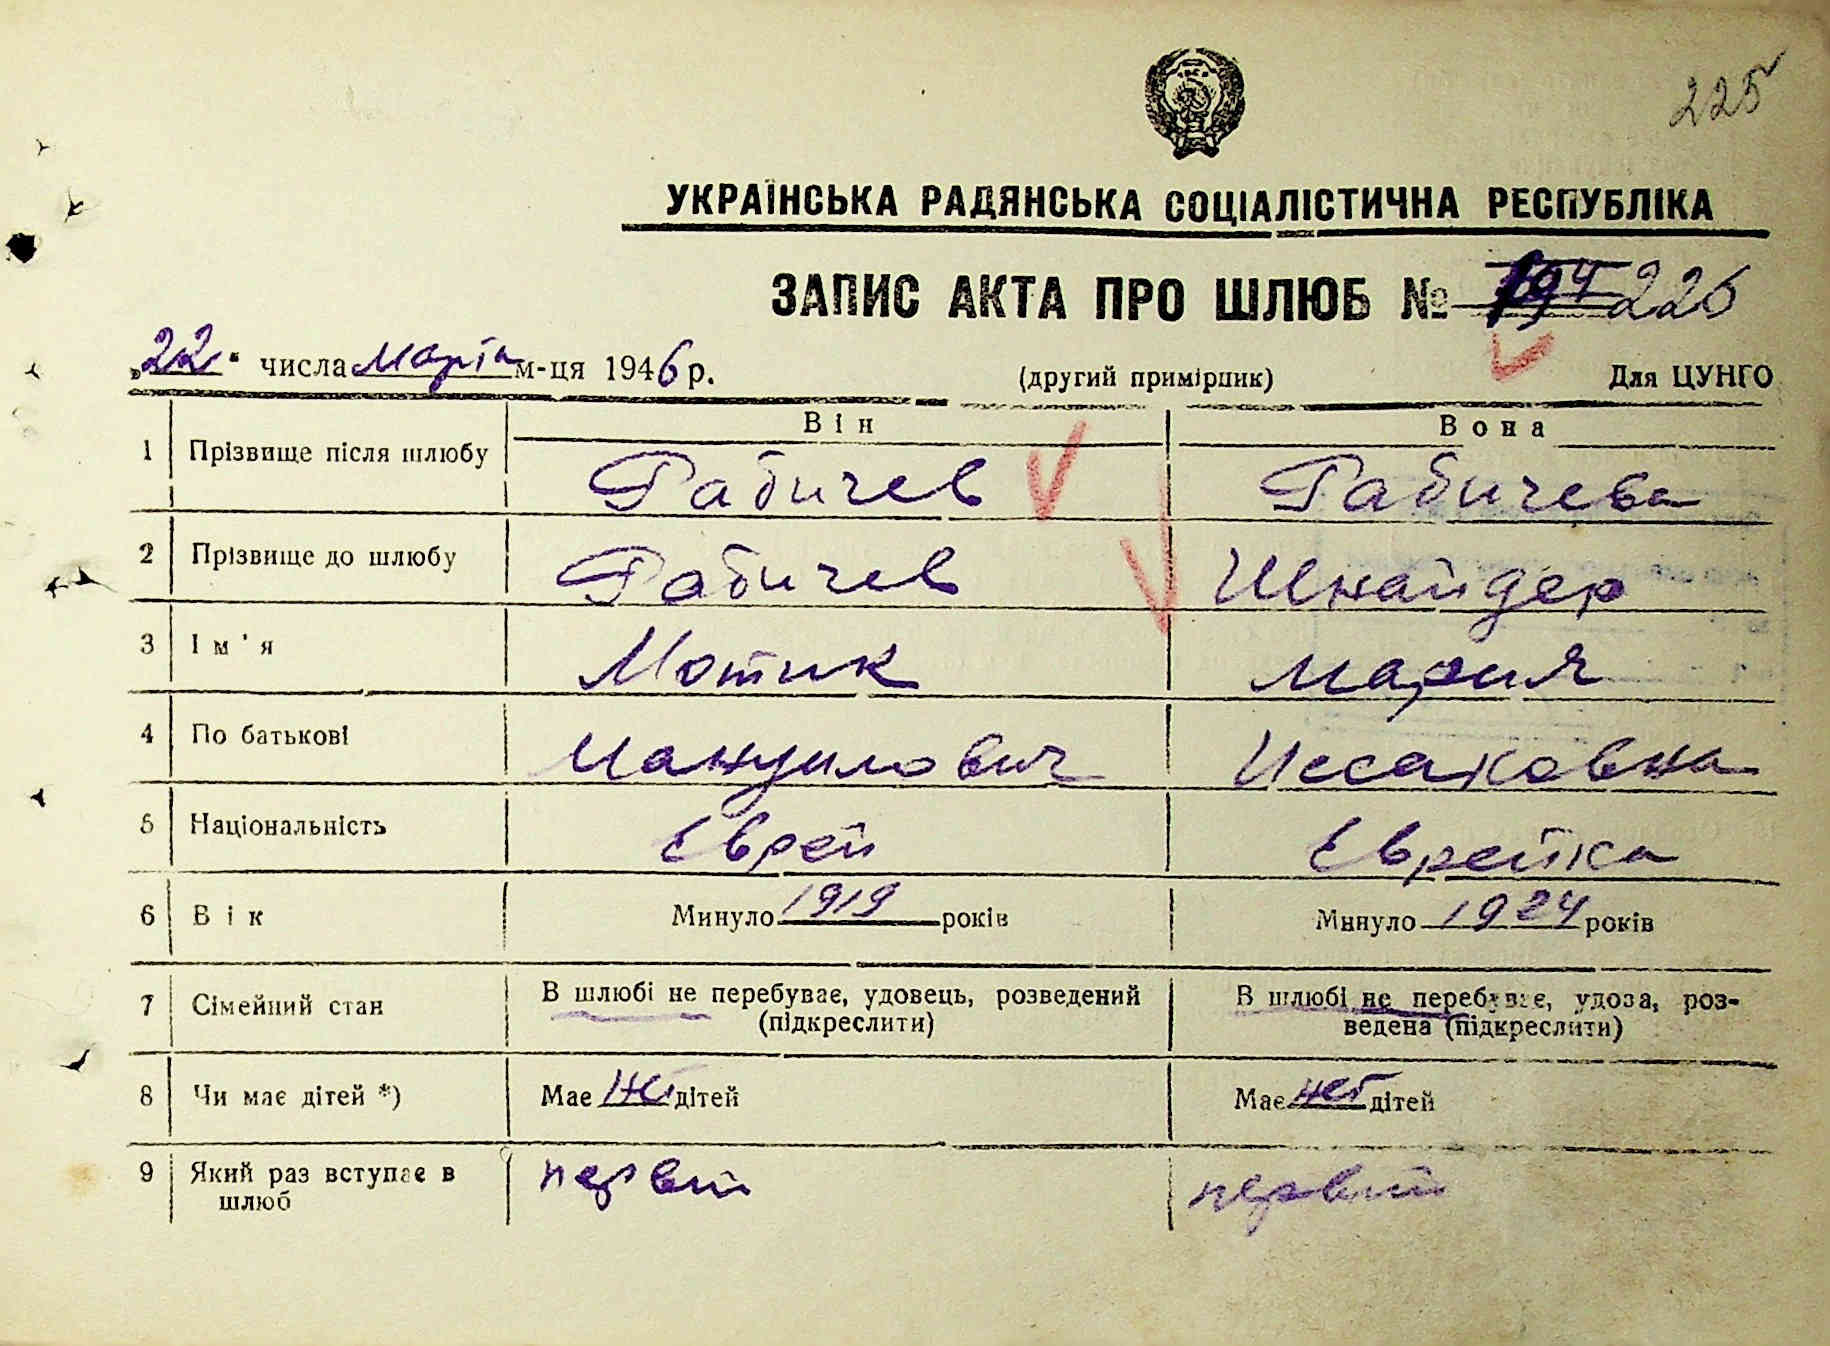 225
УКРАЇНСЬКА РАДЯНСЬКА СОЦІАЛІСТИЧНА РЕСПУБЛІКА
ЗАПИС АКТА ПРО ШЛЮБ № 194 226
„22" числа Марта м-ця 1946 р. (другий примірник) Для ЦУНГО
Він Вона
1 Прізвище після шлюбу Рабичев Рабичева
2 Прізвище до шлюбу Рабичев Шнайдер
3 Ім'я Мотик Мария
4 По батькові Мануилович Иссаковна
5 Національність Еврей Еврейка
6 Вік Минуло 1919 років Минуло 1924 років
7 Сімейний стан В шлюбі не перебуває, удовець, розведений В шлюбі не перебуває, удова, роз-
(підкреслити) ведена (підкреслити)
8 Чи має дітей *) Має нет дітей Має нет дітей
9 Який раз вступає в первий первий
шлюб